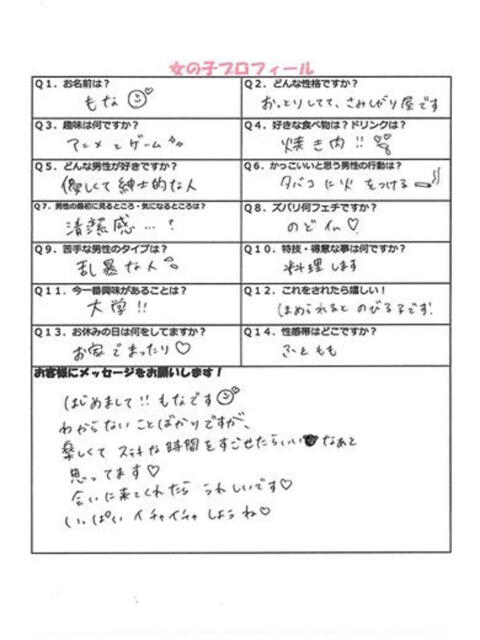 女の子プロフィール
Q1．お名前は？
もな
Q2．どんな性格ですか？
おっとりしてて、さみしがり屋です
Q3．趣味は何ですか？
アニメとゲーム
Q4．好きな食べ物は？ドリンクは？
焼き肉!!
Q5．どんな男性が好きですか？
優しくて紳士的な人
Q6．かっこいいと思う男性の行動は？
タバコに火をつける
Q7．男性の最初に見るところ・気になるところは？
清潔感…?
Q8．ズバリ何フェチですか？
のど仏♡
Q9．苦手な男性のタイプは？
乱暴な人
Q10．特技・得意な事は何ですか？
料理します
Q11．今一番興味があることは？
大学!!
Q12．これをされたら嬉しい！
ほめられるとのびる子です!
Q13．お休みの日は何をしてますか？
お家でまったり♡
Q14．性感帯はどこですか？
ふともも
お客様にメッセージをお願いします！
はじめまして!!もなです
わからないことばかりですが、
楽しくてステキな時間をすごせたらいいなぁと
思ってます♡
会いに来てくれたらうれしいです♡
いっぱいイチャイチャしようね♡